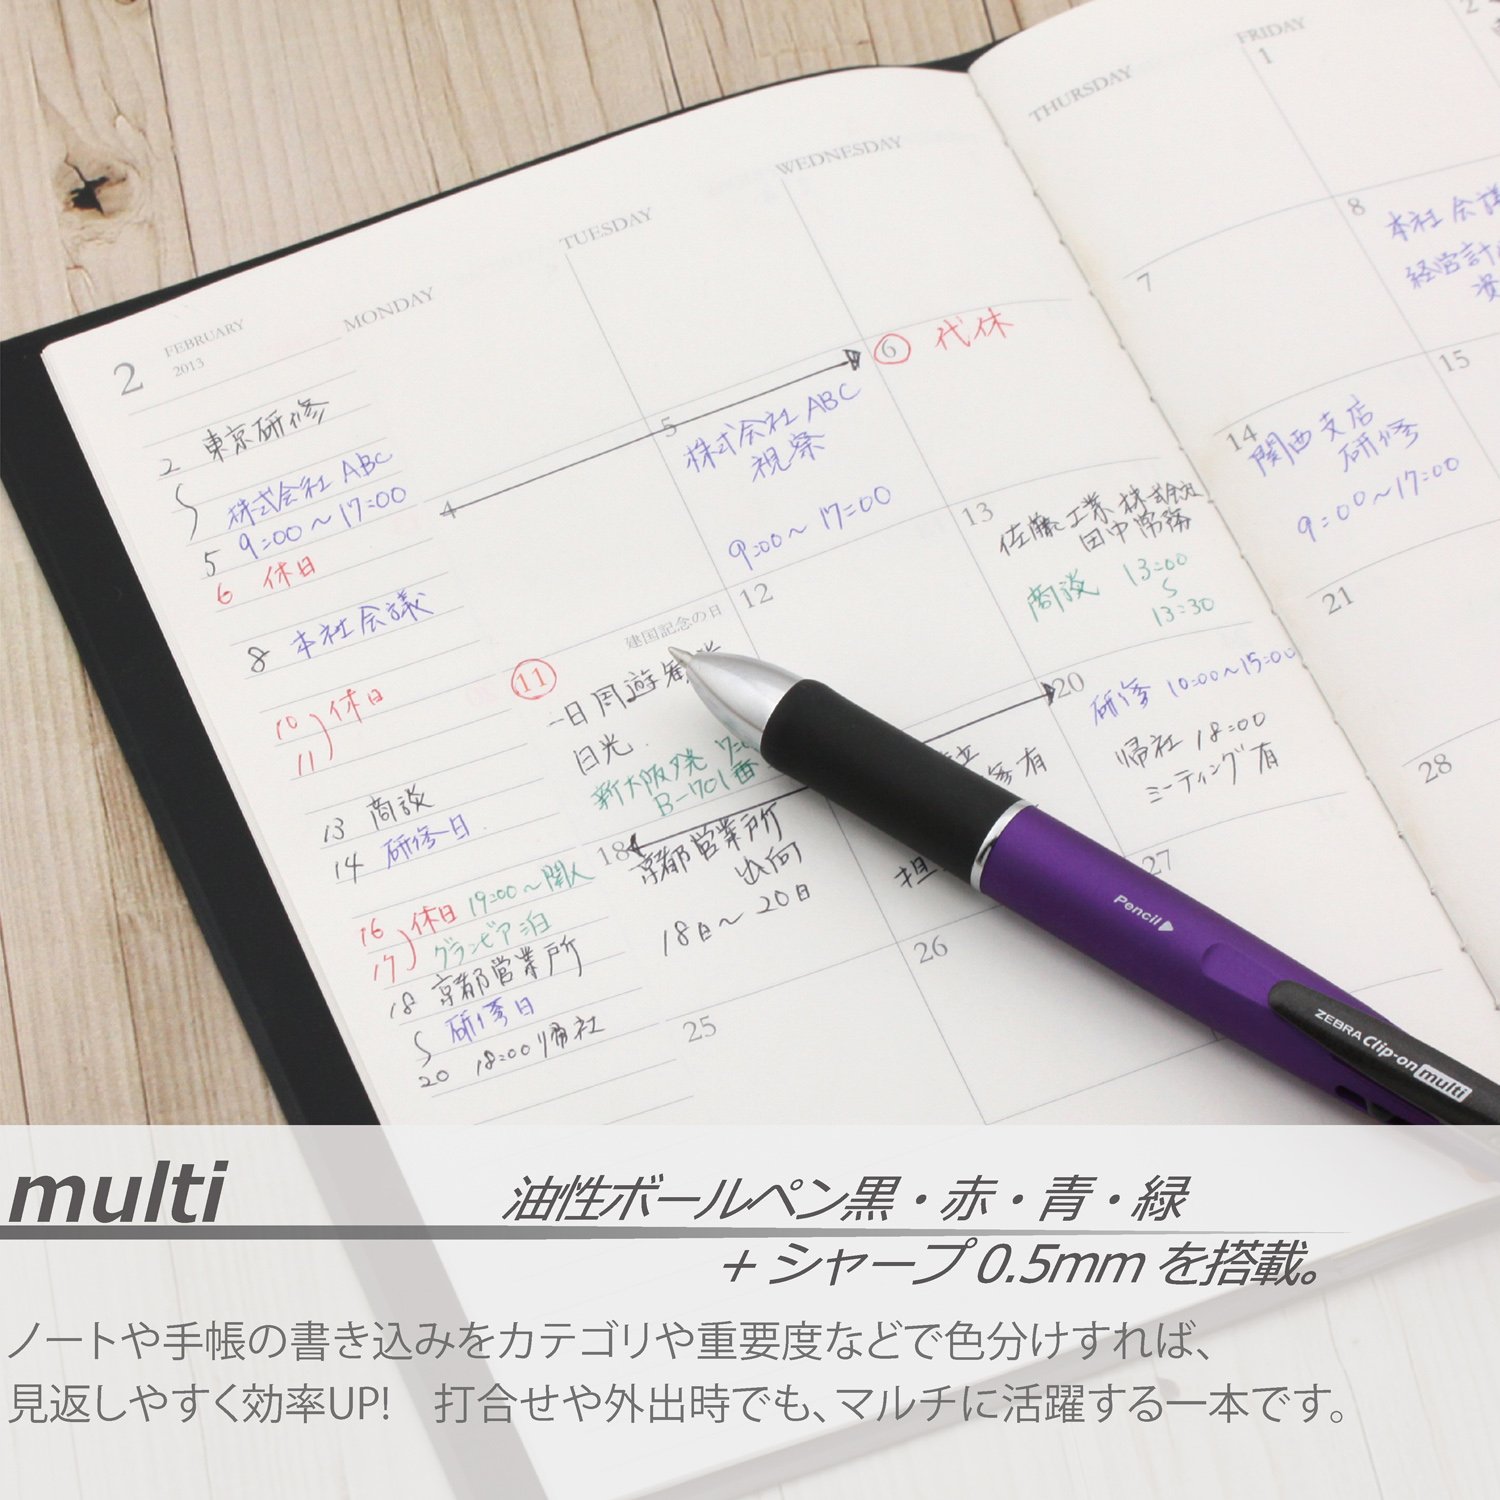 2
FEBRUARY
2013
MONDAY
TUESDAY
WEDNESDAY
THURSDAY
FRIDAY
1
2 東京研修
株式会社 ABC
5 9:00～17:00
6 休日
8 本社会議
10 休日
11
13 商談
14 研修日
16 休日 19:00～関人
17 グランビア泊
18 京都営業所
研修日
20 18:00帰社
4
5
株式会社 ABC
視察
9:00～17:00
6 代休
7
8
本社会議
経営計
建国記念の日
11
一日周遊
日光
新大阪発
B-701番
12
13
佐藤工業株式会社
田中常務
商談 13:00
13:30
14
関西支店
研修
9:00～17:00
15
18
京都営業所
出向
18日～20日
20
研修 10:00～15:00
帰社 18:00
ミーティング有
21
25
26
27
28
Pencil
ZEBRA Clip-on multi
multi
油性ボールペン黒・赤・青・緑
+ シャープ 0.5mm を搭載。
ノートや手帳の書き込みをカテゴリや重要度などで色分けすれば、
見返しやすく効率UP! 打合せや外出時でも、マルチに活躍する一本です。